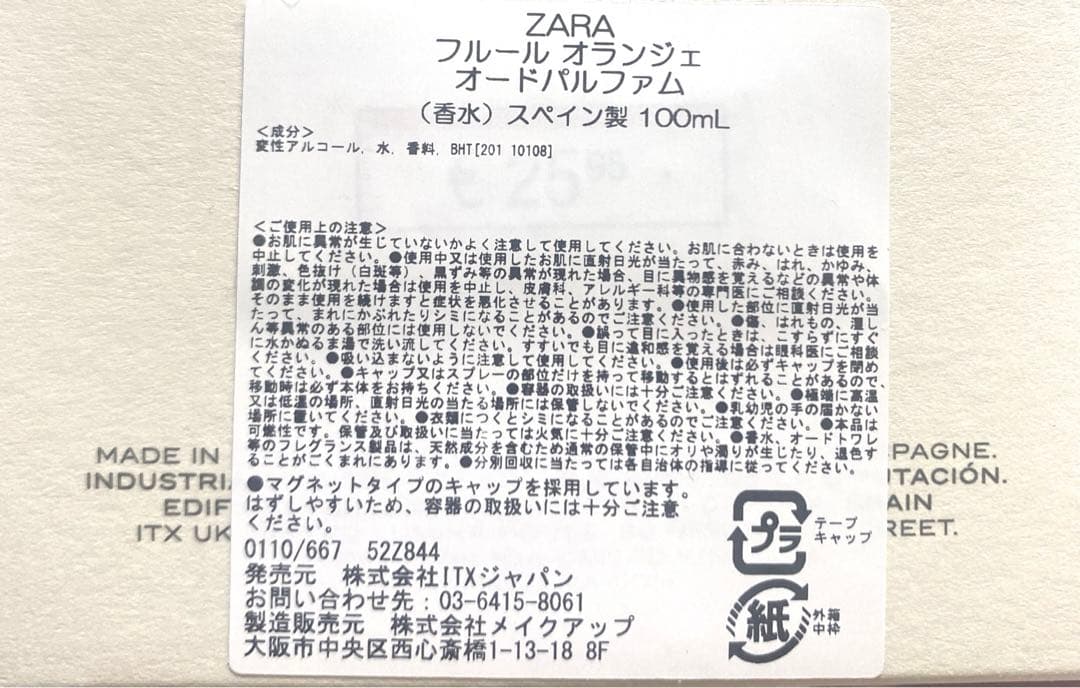 ZARA
フルール オランジェ
オードパルファム
（香水）スペイン製 100mL
＜成分＞
変性アルコール, 水, 香料, BHT[201 10108]
€ 25.95
＜ご使用上の注意＞
●お肌に異常が生じていないかよく注意して使用してください。お肌に合わないときは使用を
中止してください。●使用中又は使用したお肌に直射日光が当たって、赤み、はれ、かゆみ、
刺激、色抜け（白斑等）、黒ずみ等の異常が現れた場合、目に異物感を覚えるなどの異常や体
調の変化が現れた場合は使用を中止し、皮膚科、アレルギー科等の専門医にご相談ください。
そのまま使用を続けますと症状を悪化させることがあります。●使用した部位に直射日光が当
たって、まれにかぶれたりシミになることがあるのでご注意ください。●傷、はれもの、湿し
ん等異常のある部位には使用しないでください。●誤って目に入ったときは、こすらずにすぐ
に水かぬるま湯で洗い流してください。すすいでも目に違和感を覚える場合は眼科医にご相談
ください。●吸い込まないように注意して使用してください。●使用後は必ずキャップを閉め
てください。●キャップ又はスプレーの部位だけを持って移動するとはずれることがあるので、
移動時は必ず本体をお持ちください。●容器の取扱いには十分ご注意ください。●極端に高温
又は低温の場所、直射日光の当たる場所には保管しないでください。●乳幼児の手の届かない
場所に置いてください。●衣類につくとシミになることがあるのでご注意ください。●本品は
可燃性です。保管及び取扱いに当たっては火気に十分ご注意ください。●香水、オードトワレ
等のフレグランス製品は、天然成分を含むため通常の保管中にオリや濁りが生じたり、退色す
ることがごくまれにあります。●分別回収に当たっては各自治体の指導に従ってください。
●マグネットタイプのキャップを採用しています。
はずしやすいため、容器の取扱いには十分ご注意
ください。
0110/667 52Z844
発売元 株式会社ITXジャパン
お問い合わせ先：03-6415-8061
製造販売元 株式会社メイクアップ
大阪市中央区西心斎橋1-13-18 8F
プラ
テープ
キャップ
紙
外箱
中枠
MADE IN
INDUSTRI
EDIF
ITX UK
PAGNE.
UTACIÓN.
AIN
REET.